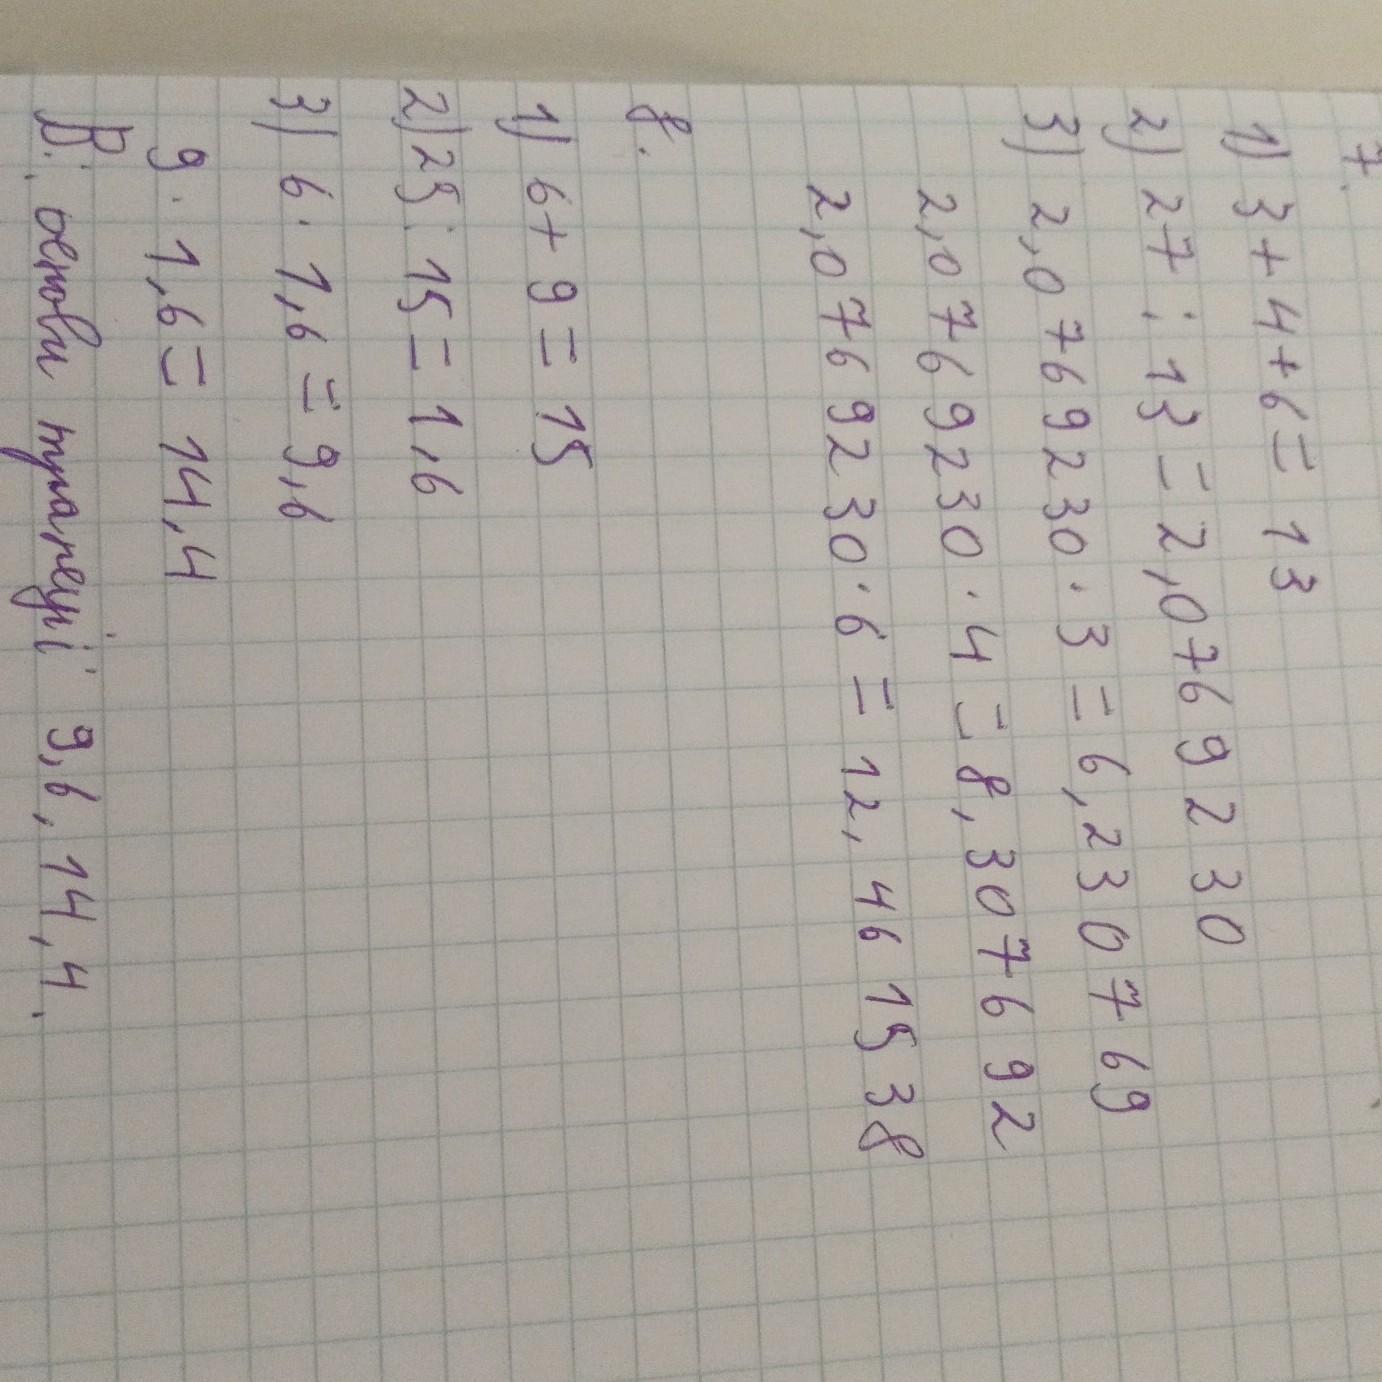 7.
1) 3 + 4 + 6 = 13
2) 27 : 13 = 2,0769230
3) 2,0769230 · 3 = 6,230769
2,0769230 · 4 = 8,307692
2,0769230 · 6 = 12,461538
8.
1) 6 + 9 = 15
2) 25 : 15 = 1,6
3) 6 · 1,6 = 9,6
9 · 1,6 = 14,4
В: основи трапеції 9,6, 14,4.